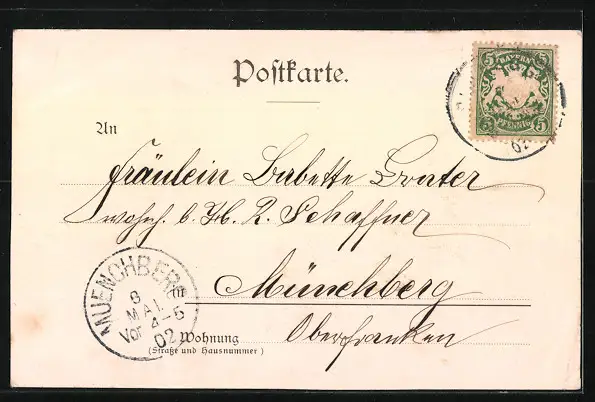 Postkarte.
5 BAYERN 5
5 PFENNIG 5
02
An
Fräulein Babette
wohnh. b. H. R. Schaffner
in Münchberg
MUENCHBERG
6
MAI
Vor 4-5
02
Wohnung
(Straße und Hausnummer)
Oberfranken